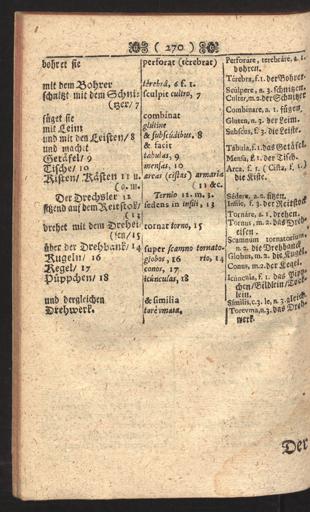 ( 270 )
bohret sie
mit dem Bohrer
schnitzt mit dem Schni-
(tzer/ 7
füget sie
mit Leim
und mit den Leisten/ 8
und macht
Getäfel/ 9
Tische/ 10
Kisten/ Kästen 11 u.
Der Drechsler 12
sitzend auf dem Reitstok/
( 13
drehet mit dem Dreh-
über der Drehbank/ 14
Kugeln/ 16
Kegel/ 17
Püppchen/ 18
und dergleichen
Drehwerk.
perforat (terebrat)
térebrâ, 6 f. 1.
sculpit cultro, 7
combinat
glútine
& subscúdibus, 8
& facit
tabulas, 9
mensas, 10
arcas (cistas) armaria
( 11 &c.
Tornio 12. m. 3.
sedens in insili, 13
tornat torno, 15
super scamno tornato-
rio, 14
globos, 16
conos, 17
icúnculas, 18
& similia
toreumata.
Perforáre, terebráre, a. 1.
bohren.
Térebra, f. 1. der Bohrer.
Sculpere, a. 3. schnitzen.
Culter, m. 2. der Schnitzer
Combinare, a. 1. fügen.
Gluten, n. 3. der Leim.
Subscus, f. 3. die Leiste.
Tábula, f. 1. das Getäfel.
Mensa, f. 1. der Tisch.
Arca, f. 1. ( Cista, f. 1.)
die Kiste.
Sedére, n. 2. sitzen.
Insile, f. 3. der Reitstock
Tornáre, a. 1. drehen.
Tornus, m. 2. das Dreh-
eisen.
Scamnum tornatorium,
n. 2. die Drehbanck.
Globus, m. 2. die Kugel.
Conus, m. 2. der Kegel.
Icúncula, f. 1. das Püpp-
Similis, c. 3. le, n. 3. gleich.
Toreuma, n. 3. das Dreh-
werk.
Der